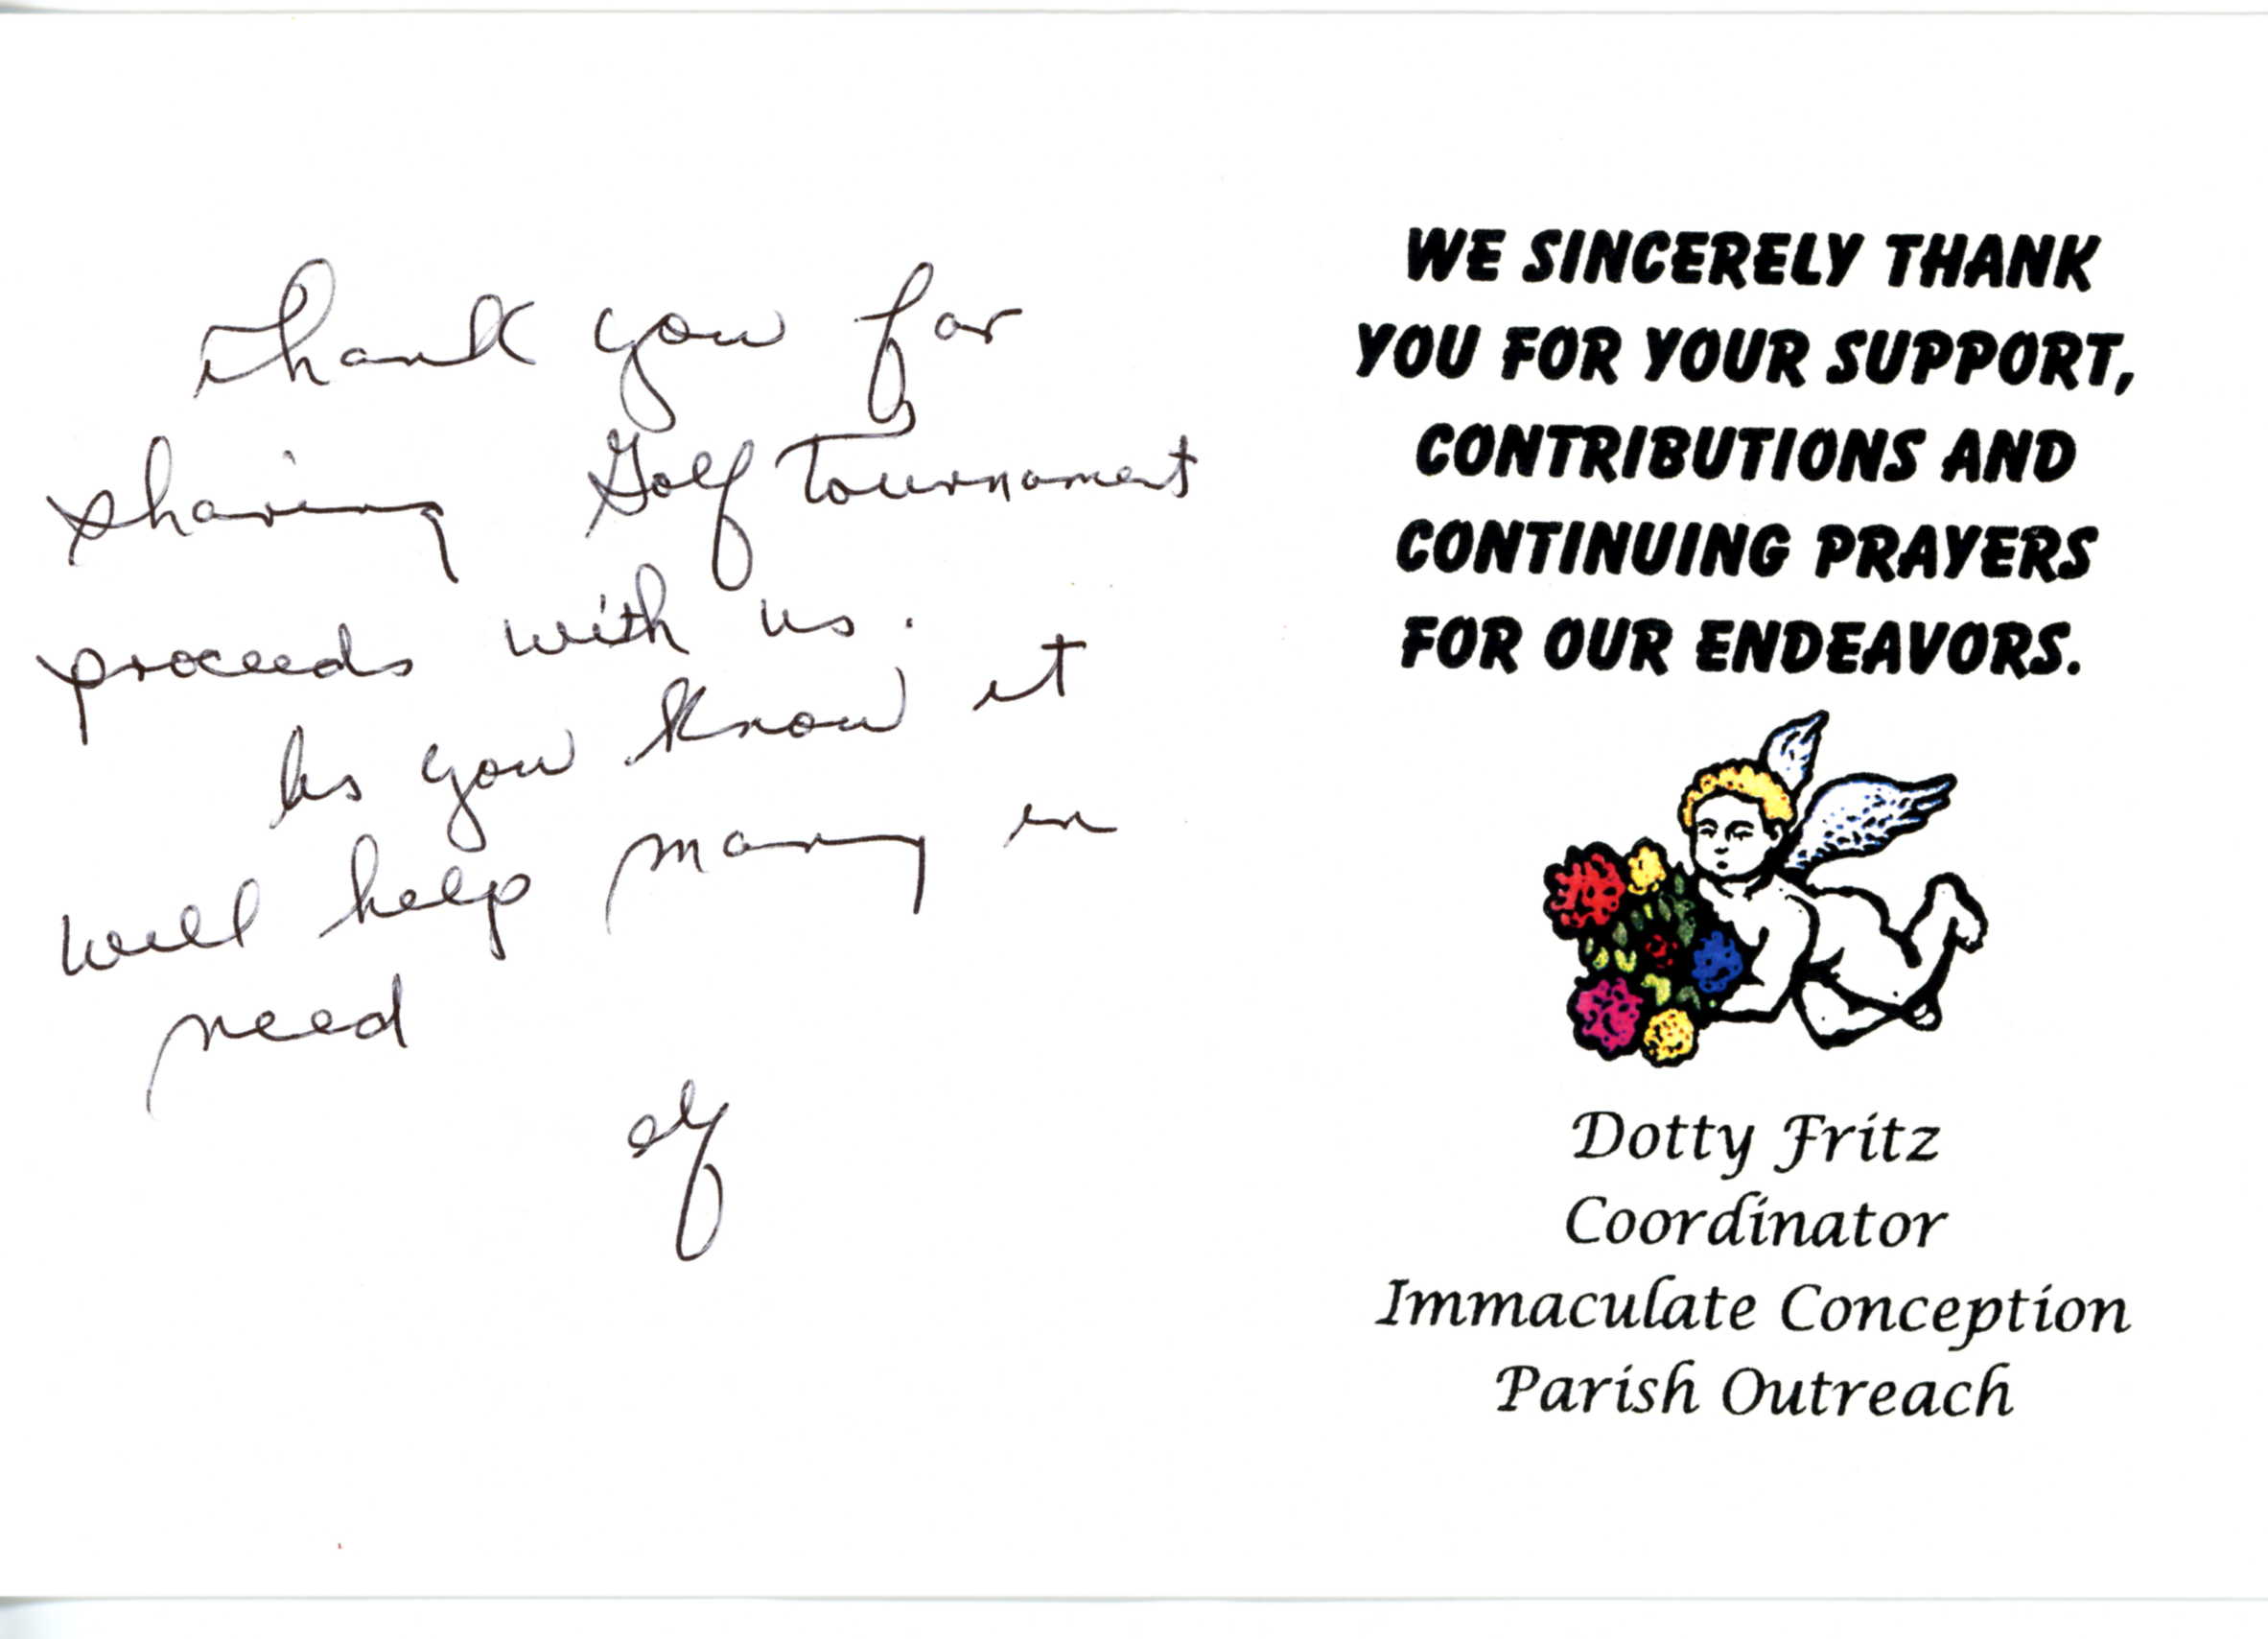 Thank you for
sharing Golf Tournament
proceeds with us.
As you know it
will help many in
need
WE SINCERELY THANK
YOU FOR YOUR SUPPORT,
CONTRIBUTIONS AND
CONTINUING PRAYERS
FOR OUR ENDEAVORS.
Dotty Fritz
Coordinator
Immaculate Conception
Parish Outreach